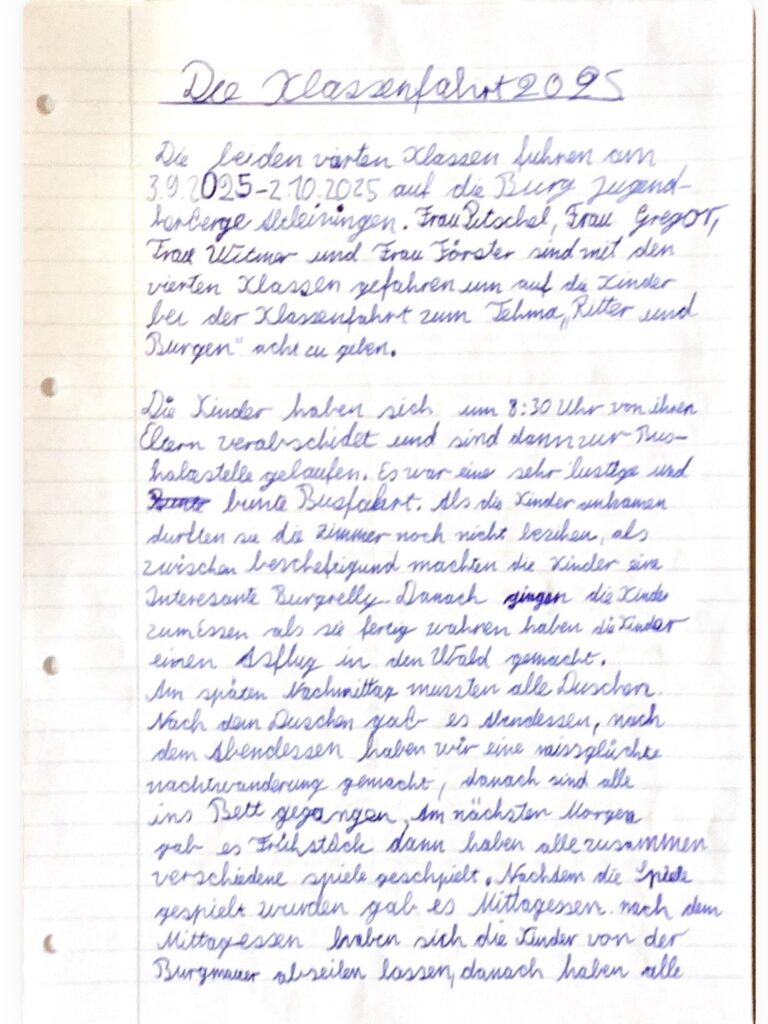 Die Klassenfahrt 2025
Die beiden vierten Klassen fuhren am
3.9.2025-2.10.2025 auf die Burg Jugend-
herberge Altleiningen. Frau Putschel, Frau Gregor,
Frau Witmer und Frau Förster sind mit den
vierten Klassen gefahren um auf die Kinder
bei der Klassenfahrt zum Tehma „Ritter und
Burgen" acht zu geben.
Die Kinder haben sich um 8:30 Uhr von ihren
Eltern verabschidet und sind dann zur Bus-
halastelle gelaufen. Es war eine sehr lustige und
bunte Busfahrt. Als die Kinder ankamen
durften sie die Zimmer noch nicht beziehen, als
zwischen beschefigund machten die Kinder eine
Interesante Burgrelly. Danach gingen die Kinder
zum Essen als sie fertig wahren haben die Kinder
einen Asflug in den Wald gemacht.
Am späten Nachmittag mussten alle Duschen.
Nach dem Duschen gab es Abendessen, nach
dem Abendessen haben wir eine missglückte
nachtwanderung gemacht, danach sind alle
ins Bett gegangen. Am nächsten Morgen
gab es Frühstück dann haben alle zusammen
verschiedene spiele geschpielt. Nachdem die Spiele
gespielt wurden gab es Mittagessen. nach dem
Mittagessen haben sich die Kinder von der
Burgmauer abseilen lassen, danach haben alle